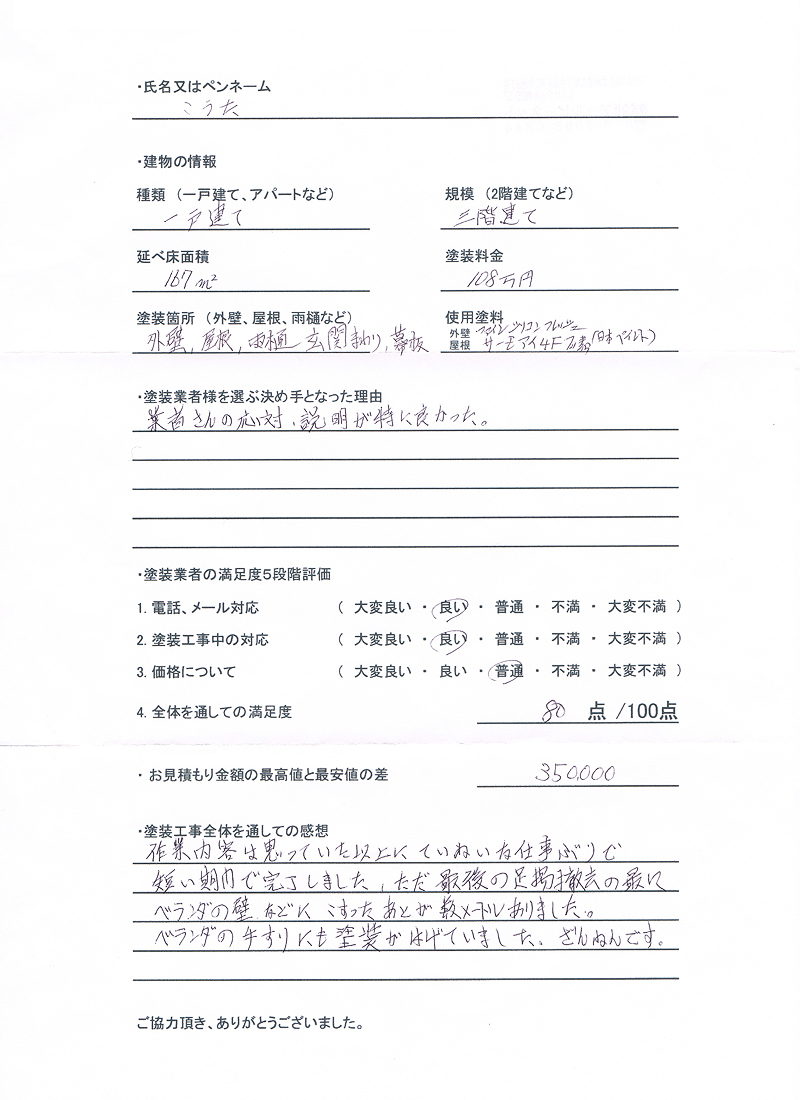 ・氏名又はペンネーム
こうた
・建物の情報
種類（一戸建て、アパートなど） 規模（2階建てなど）
一戸建て 三階建て
延べ床面積 塗装料金
167㎡ 108万円
塗装箇所（外壁、屋根、雨樋など） 使用塗料
外壁、屋根、雨樋、玄関まわり、幕板 外壁 ファインシリコンフレッシュ
屋根 サーモアイ4F (日本ペイント)
・塗装業者様を選ぶ決め手となった理由
業者さんの応対、説明が特に良かった。
・塗装業者の満足度5段階評価
1. 電話、メール対応 （ 大変良い ・ 良い ・ 普通 ・ 不満 ・ 大変不満 ）
2. 塗装工事中の対応 （ 大変良い ・ 良い ・ 普通 ・ 不満 ・ 大変不満 ）
3. 価格について （ 大変良い ・ 良い ・ 普通 ・ 不満 ・ 大変不満 ）
4. 全体を通しての満足度 80 点 /100点
・ お見積もり金額の最高値と最安値の差 350.000
・塗装工事全体を通しての感想
作業内容は思っていた以上にていねいな仕事ぶりで
短い期内で完了しました、ただ最後の足場撤去の最に
ベランダの壁などにこすったあとが数メートルありました。
ベランダの手すりにも塗装がはげていました、ざんねんです。
ご協力頂き、ありがとうございました。